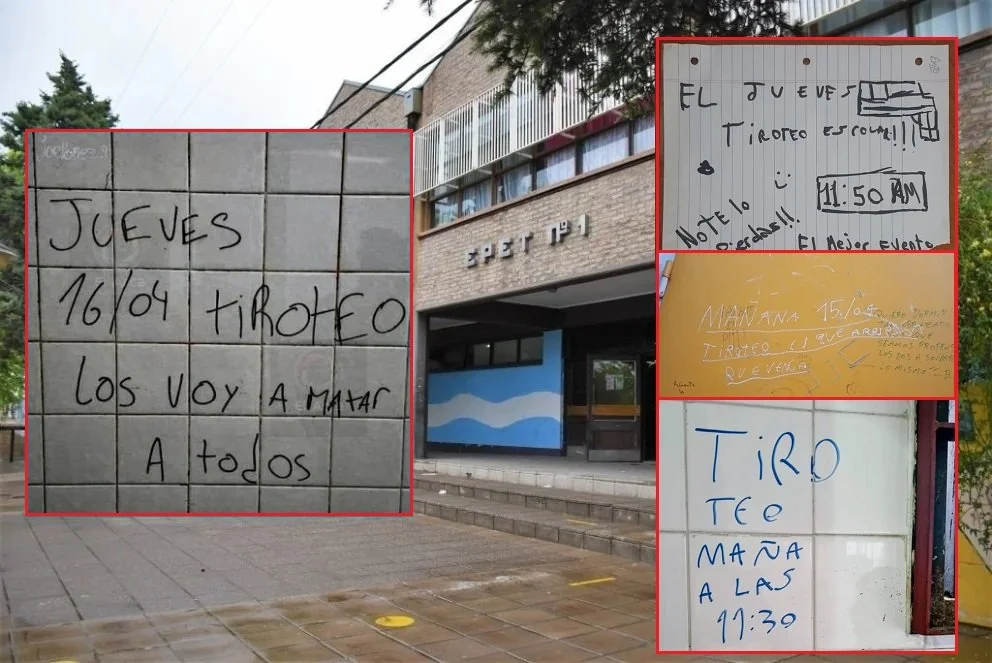 JUEVES
16/04 tiROtEO
Los VOY A MAtAr
A todos
EPET Nº1
EL JUEVES
TIROTEO ESCOLAR!!!
11:50 AM
NOTE lo
pierdas!!
El Mejor Evento
MAÑANA 15/04
TIROTEO
QUE VENGA
TiRO
TEO
MAÑA
A LAS
11:30